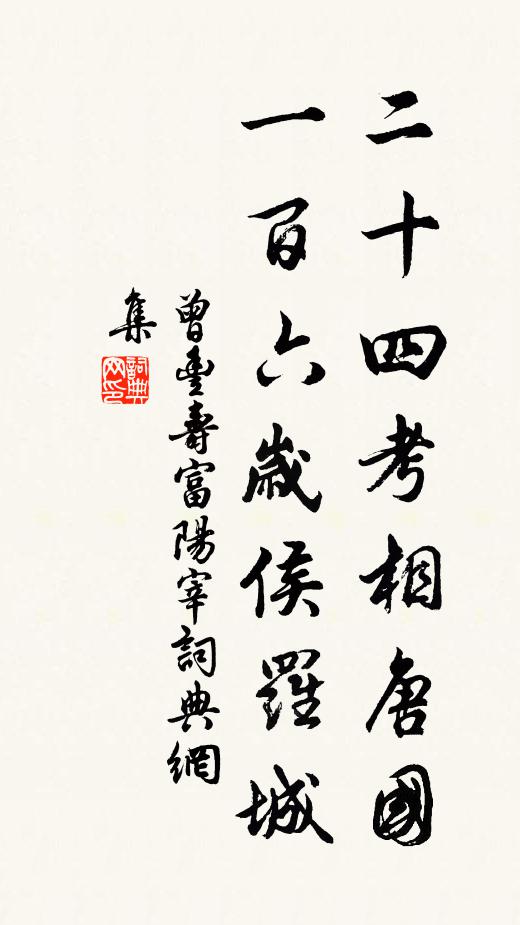 二十四考相唐國
一百六歲侯羅城
曾豐壽富陽宰詞典網
集
詞典网印